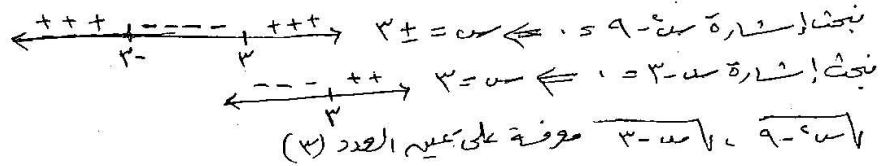 نبحث إشارة س² - ٩ = ٠ ⇐ س = ± ٣
+ + + - - - - + + +
-٣ ٣
نبحث إشارة س - ٣ = ٠ ⇐ س = ٣
- - - + +
٣
√(س² - ٩) ، √(س - ٣) معرفة على يمين العدد (٣)